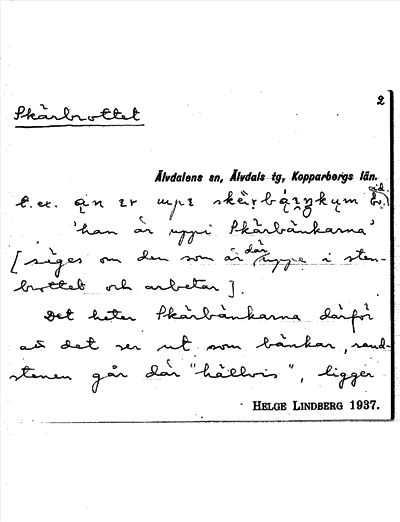 2
Skärbrottet
Älvdalens sn, Älvdals tg, Kopparbergs län.
t. ex. ą̈n ɛr uppɛ
'han är uppi Skärbänkarna'
[säges om den som är där uppe i sten-
brottet och arbetar].
Det heter Skärbänkarna därför
att det ser ut som bänkar, sand-
stenen går där "hällvis", ligger
HELGE LINDBERG 1937.